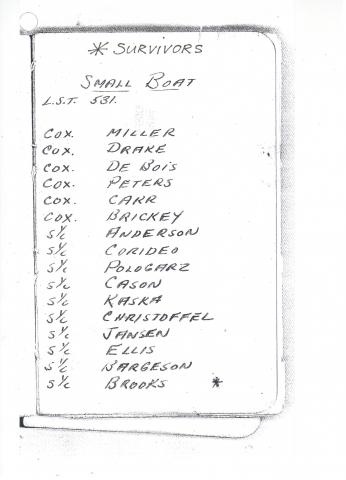 * SURVIVORS
SMALL BOAT
L.S.T. 531.
COX. MILLER
COX. DRAKE
COX. DE BOIS
COX. PETERS
COX. CARR
COX. BRICKEY
S 1/c ANDERSON
S 1/c CORIDEO
S 1/c POLOGARZ
S 1/c CASON
S 1/c KASKA
S 1/c CHRISTOFFEL
S 1/c JANSEN
S 1/c ELLIS
S 1/c BARGESON
S 1/c BROOKS *